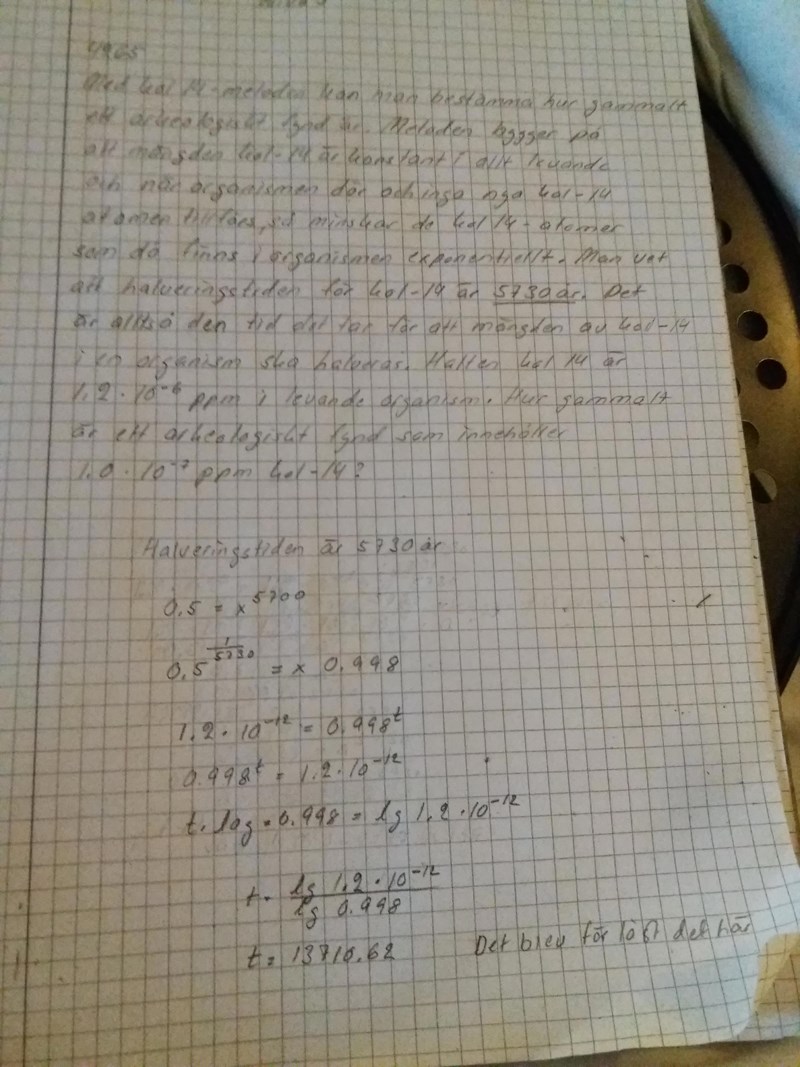 4265
Med kol 14-metoden kan man bestämma hur gammalt
ett arkeologiskt fynd är. Metoden bygger på
att mängden kol-14 är konstant i allt levande
och när organismen dör och inga nya kol-14
atomen tillförs, så minskar de kol 14-atomer
som då finns i organismen exponentiellt. Man vet
att halveringstiden för kol-14 är 5730 år. Det
är alltså den tid det tar för att mängden av kol-14
i en organism ska halveras. Halten kol 14 är
1.2 · 10⁻⁶ ppm i levande organism. Hur gammalt
är ett arkeologiskt fynd som innehåller
1.0 · 10⁻⁷ ppm kol-14?
Halveringstiden är 5730 år
0.5 = x^5700
0.5^(1/5730) = x 0.998
1.2 · 10⁻¹² = 0.998^t
0.998^t = 1.2 · 10⁻¹²
t · log · 0.998 = lg 1.2 · 10⁻¹²
t = lg 1.2 · 10⁻¹² / lg 0.998
t = 13710.62 Det blev för lågt det här